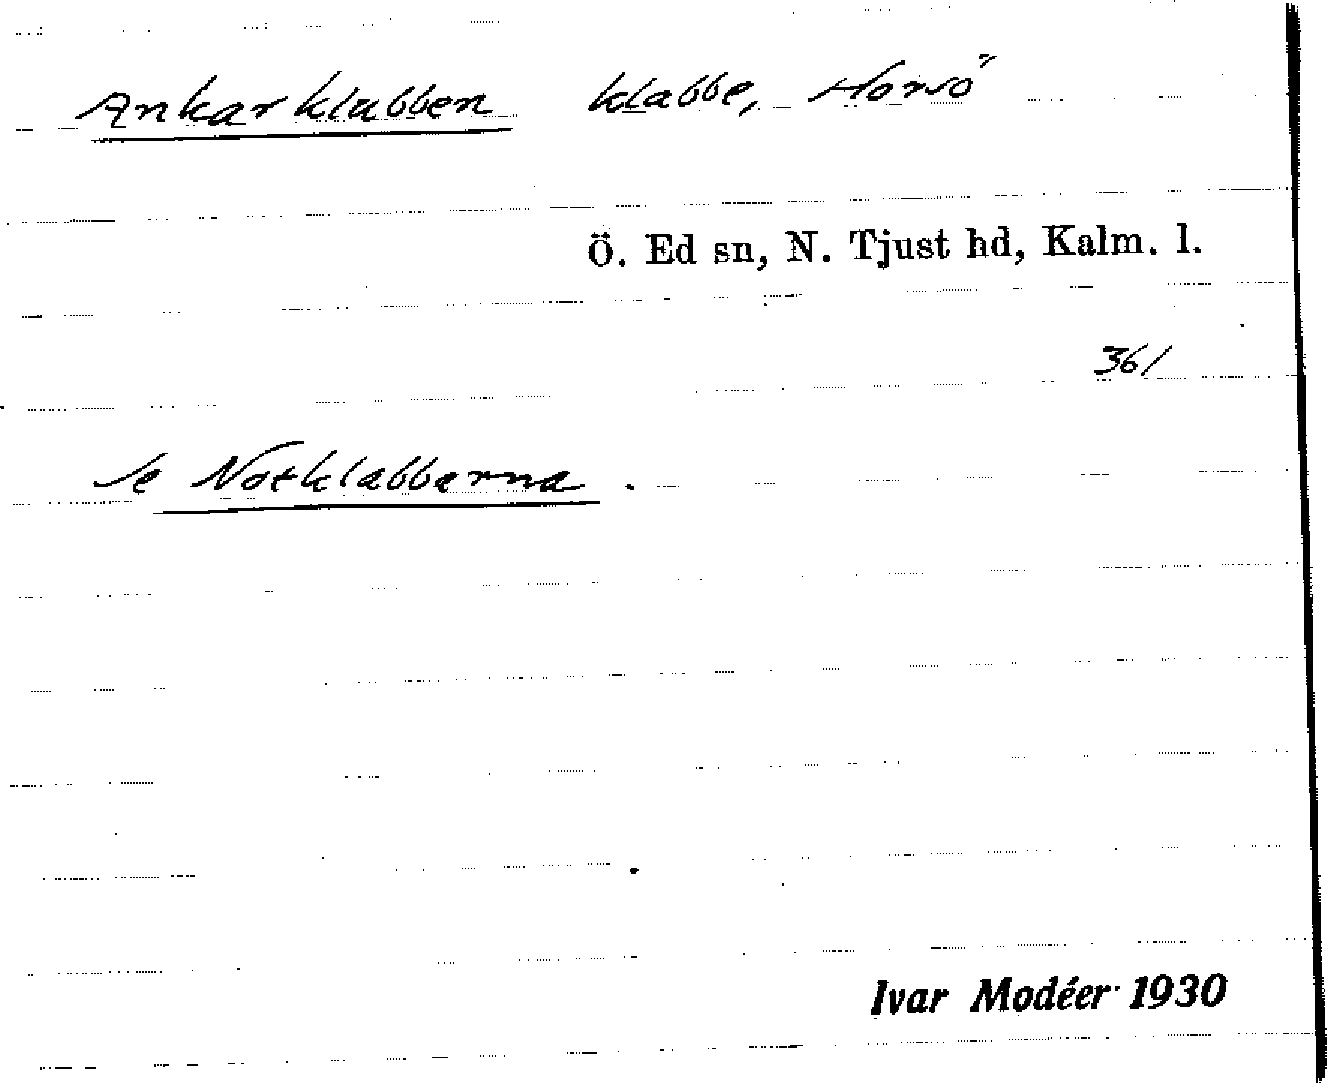 Ankarklabben klabbe, Horsö
Ö. Ed sn, N. Tjust hd, Kalm. l.
361
Se Notklabbarna.
Ivar Modéer 1930